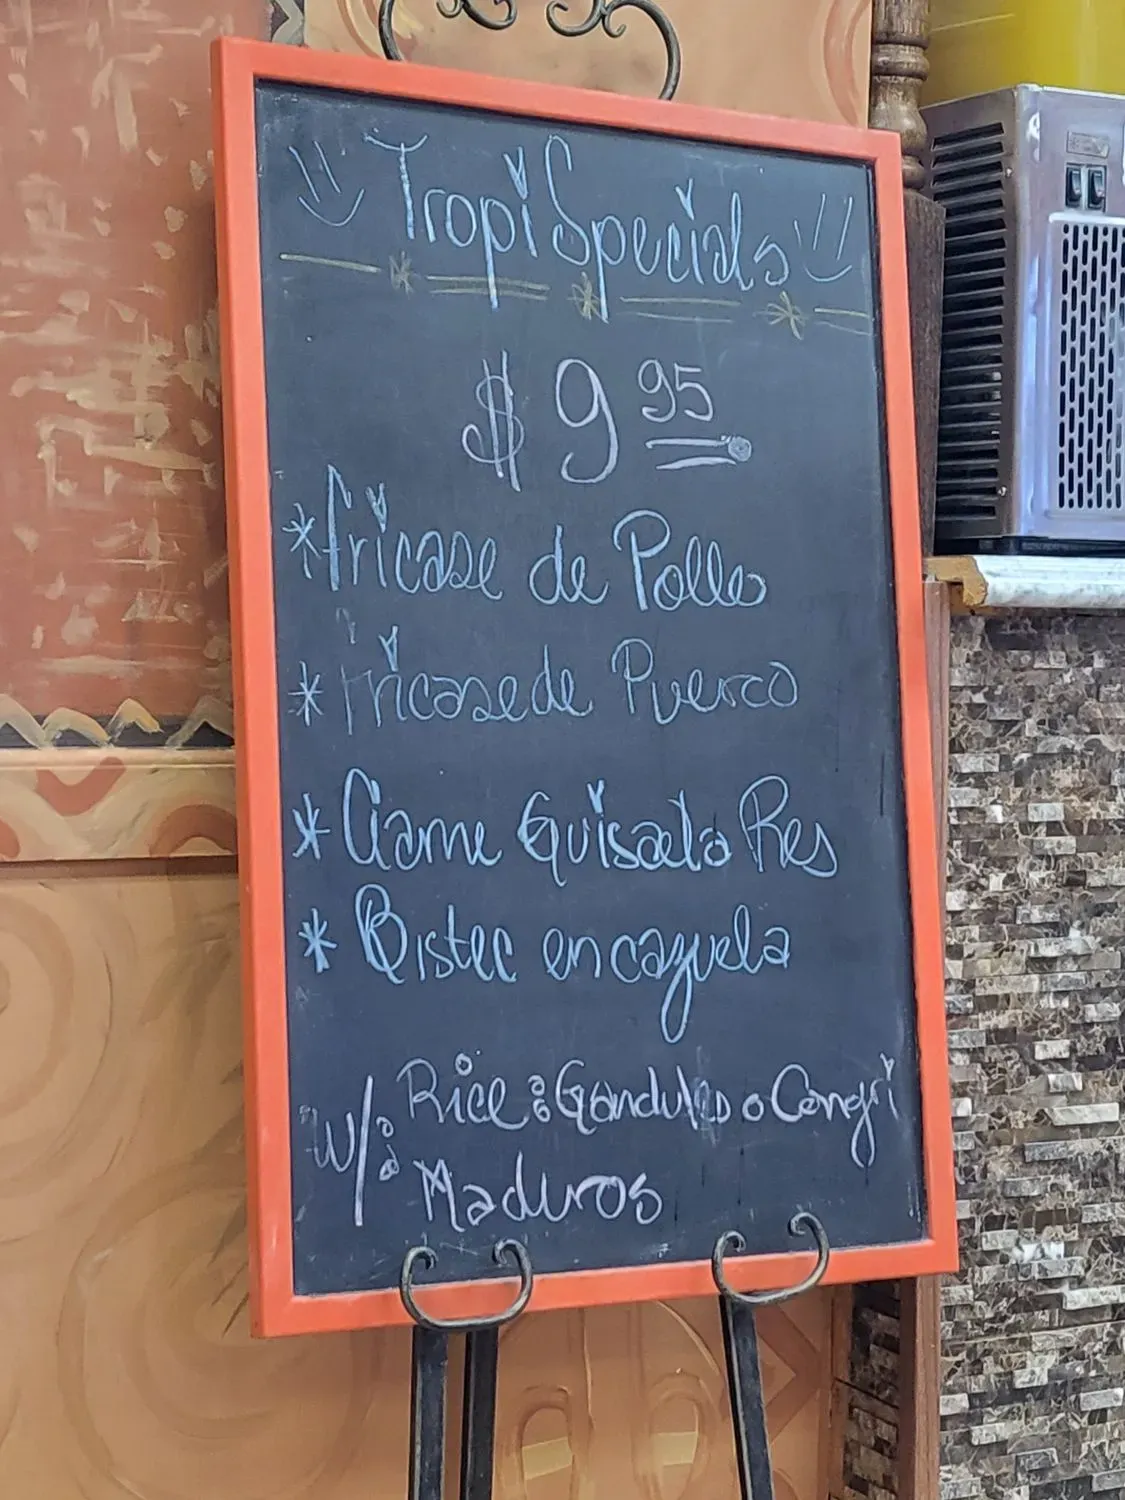 Tropi Specials
$ 9 95
* fricase de Pollo
* fricase de Puerco
* Carne Guisada Res
* Bistec en cazuela
w/: Rice : Gandules o Congri
Maduros